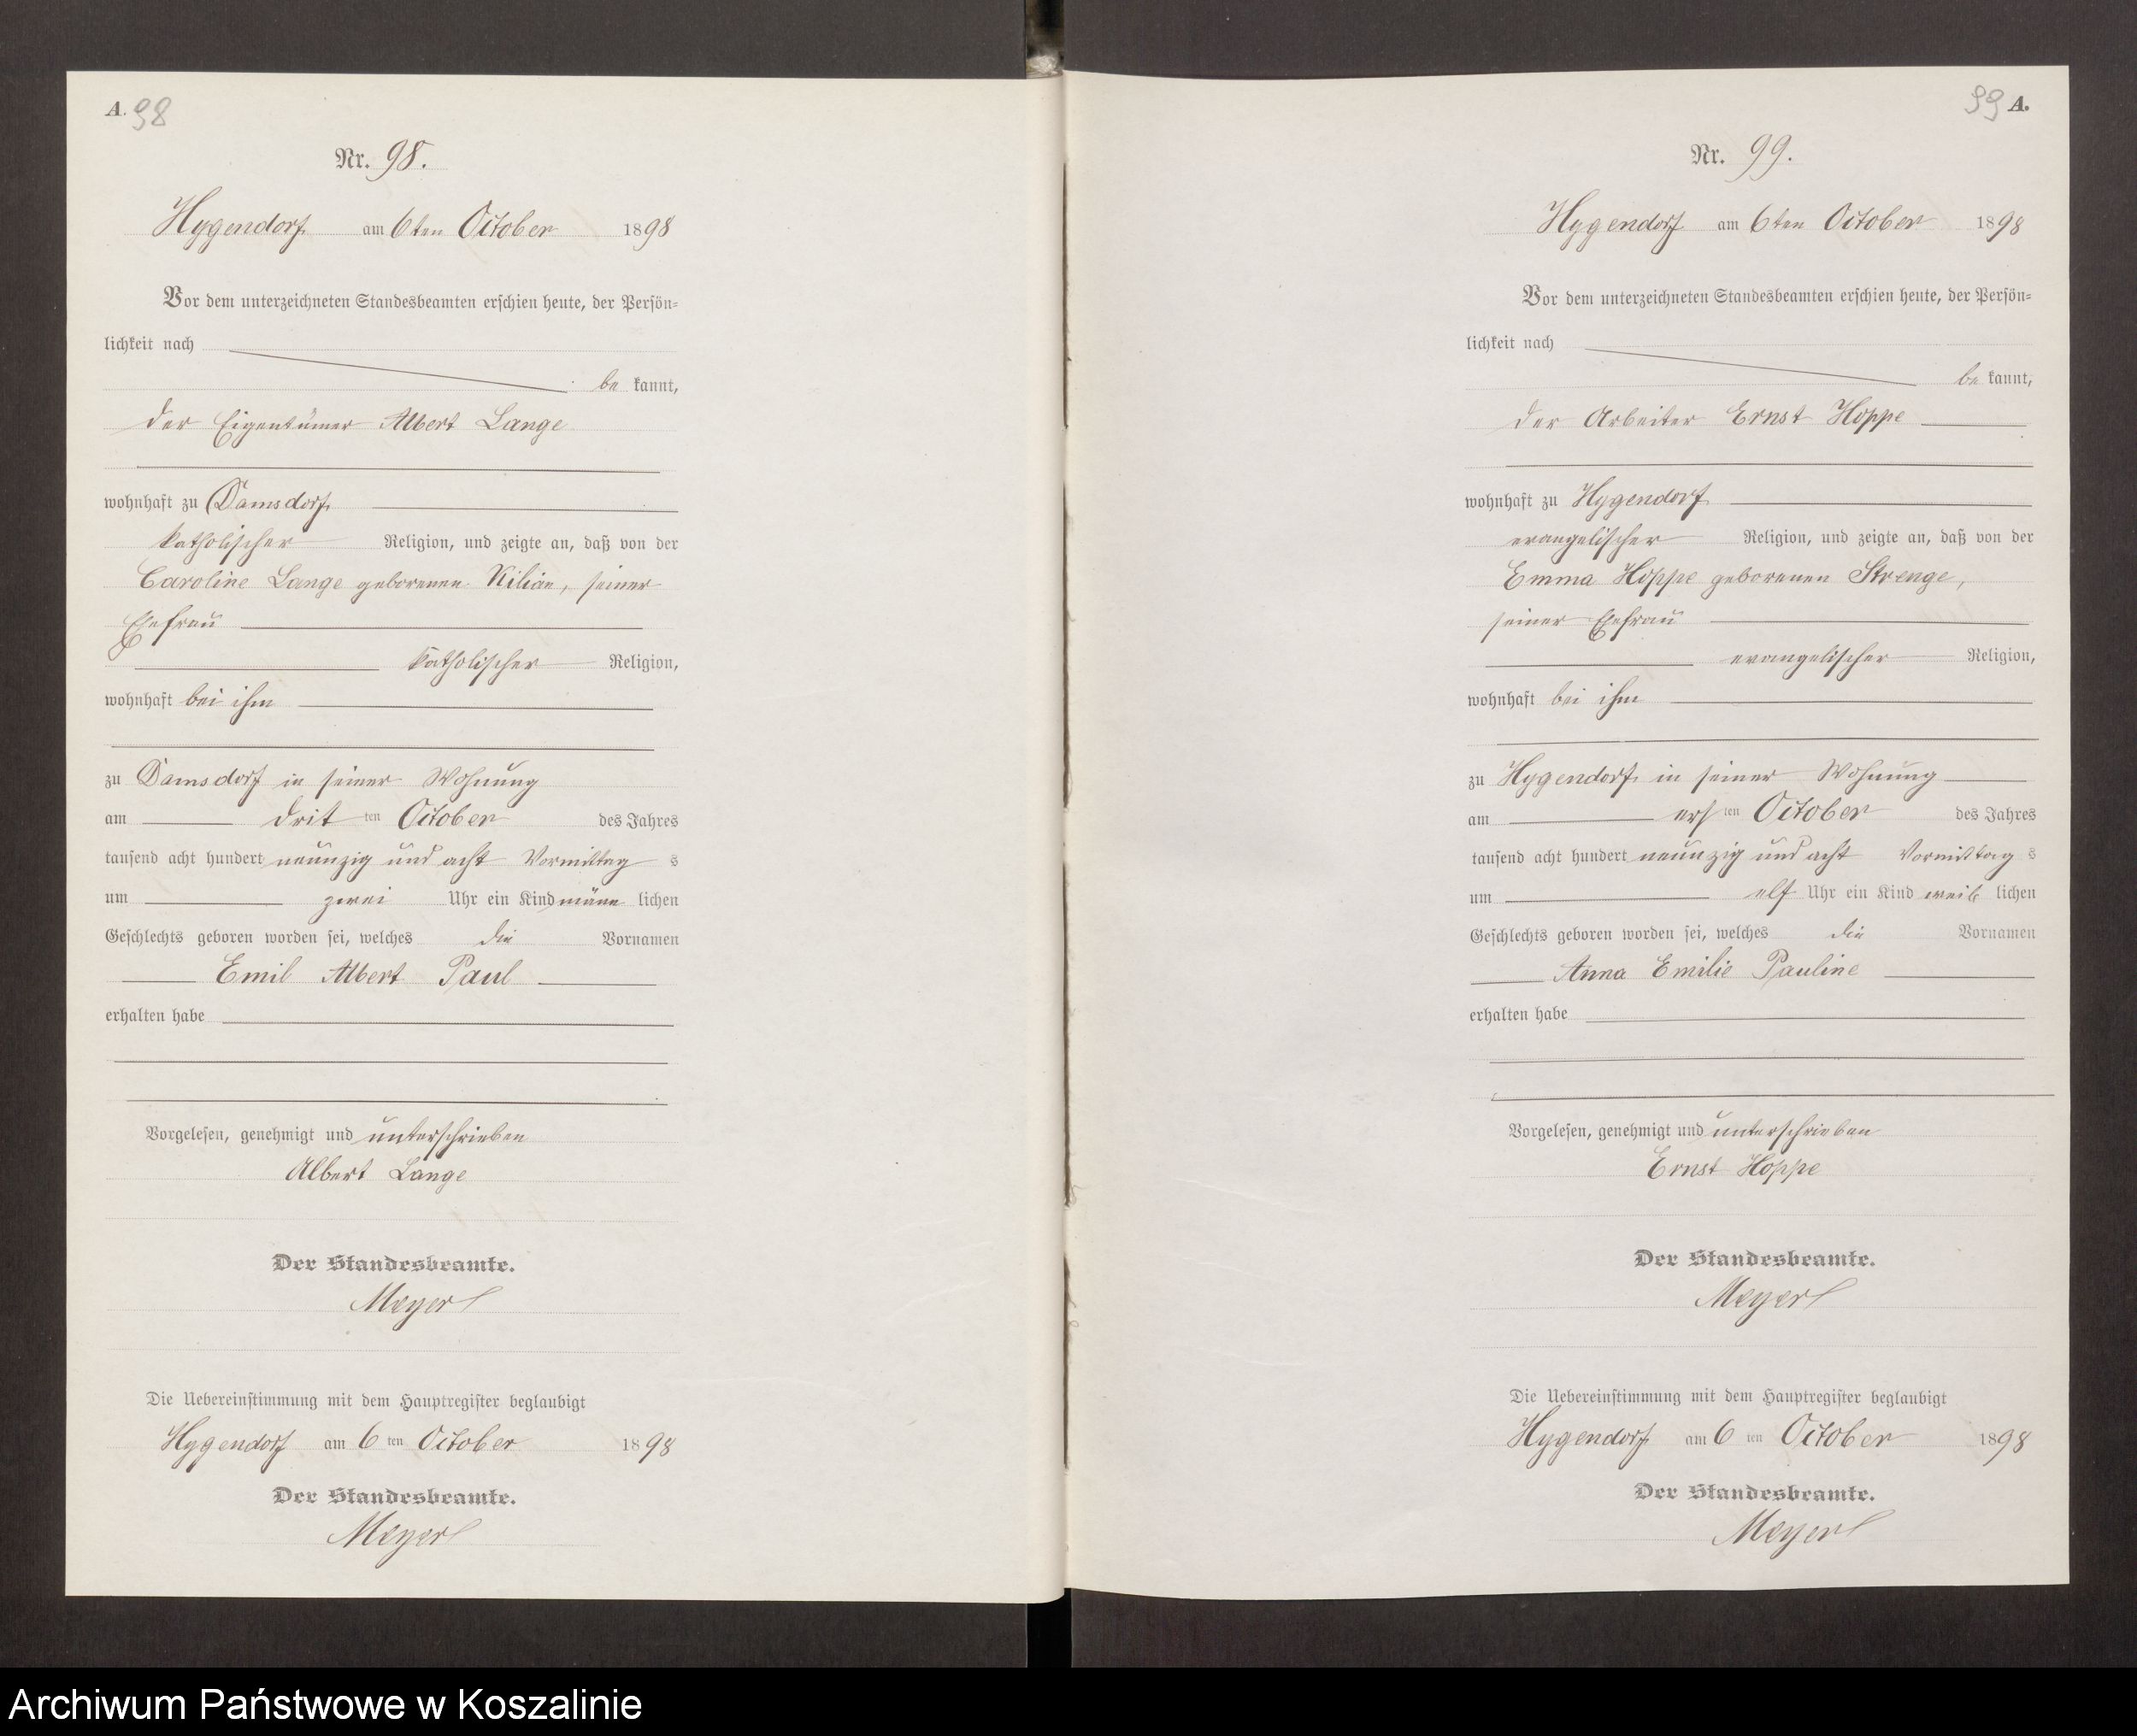 A. 98
Nr. 98.
Hygendorf am 6ten October 1898
Vor dem unterzeichneten Standesbeamten erschien heute, der Persön=
lichkeit nach
be kannt,
der Eigentümer Albert Lange
wohnhaft zu Damsdorf
katholischer Religion, und zeigte an, daß von der
Caroline Lange geborenen Kilian, seiner
Ehefrau
katholischer Religion,
wohnhaft bei ihm
zu Damsdorf in seiner Wohnung
am drit ten October des Jahres
tausend acht hundert neunzig und acht Vormittag s
um zwei Uhr ein Kind männ lichen
Geschlechts geboren worden sei, welches die Vornamen
Emil Albert Paul
erhalten habe
Vorgelesen, genehmigt und unterschrieben
Albert Lange
Der Standesbeamte.
Meyer
Die Uebereinstimmung mit dem Hauptregister beglaubigt
Hygendorf am 6 ten October 1898
Der Standesbeamte.
Meyer
99 A.
Nr. 99.
Hygendorf am 6ten October 1898
Vor dem unterzeichneten Standesbeamten erschien heute, der Persön=
lichkeit nach
be kannt,
der Arbeiter Ernst Hoppe
wohnhaft zu Hygendorf
evangelischer Religion, und zeigte an, daß von der
Emma Hoppe geborenen Strenge,
seiner Ehefrau
evangelischer Religion,
wohnhaft bei ihm
zu Hygendorf in seiner Wohnung
am ers ten October des Jahres
tausend acht hundert neunzig und acht Vormittag s
um elf Uhr ein Kind weib lichen
Geschlechts geboren worden sei, welches die Vornamen
Anna Emilie Pauline
erhalten habe
Vorgelesen, genehmigt und unterschrieben
Ernst Hoppe
Der Standesbeamte.
Meyer
Die Uebereinstimmung mit dem Hauptregister beglaubigt
Hygendorf am 6 ten October 1898
Der Standesbeamte.
Meyer
Archiwum Państwowe w Koszalinie